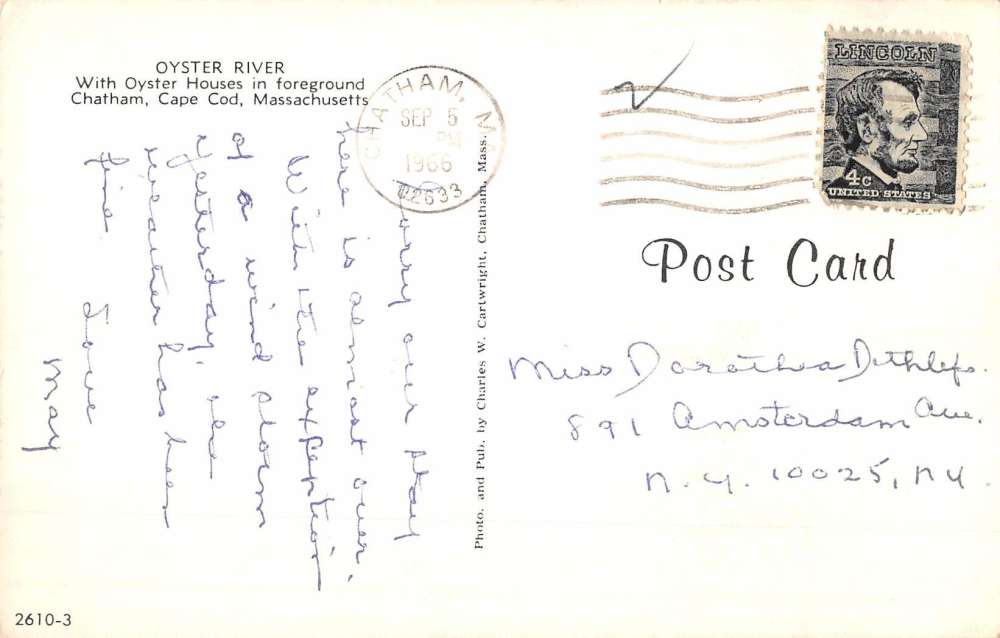 OYSTER RIVER
With Oyster Houses in foreground
Chatham, Cape Cod, Massachusetts
CHATHAM, MA
SEP 5
PM
1966
02633
LINCOLN
4c
UNITED STATES
Post Card
Sorry our stay
here is almost over.
With the exfeption
of a wind storm
yesterday, the
weather has been
fine
Love
May
Photo. and Pub. by Charles W. Cartwright, Chatham, Mass.
Miss Dorothea Dethlefs.
891 Amsterdam Ave.
N.Y. 10025, NY.
2610-3